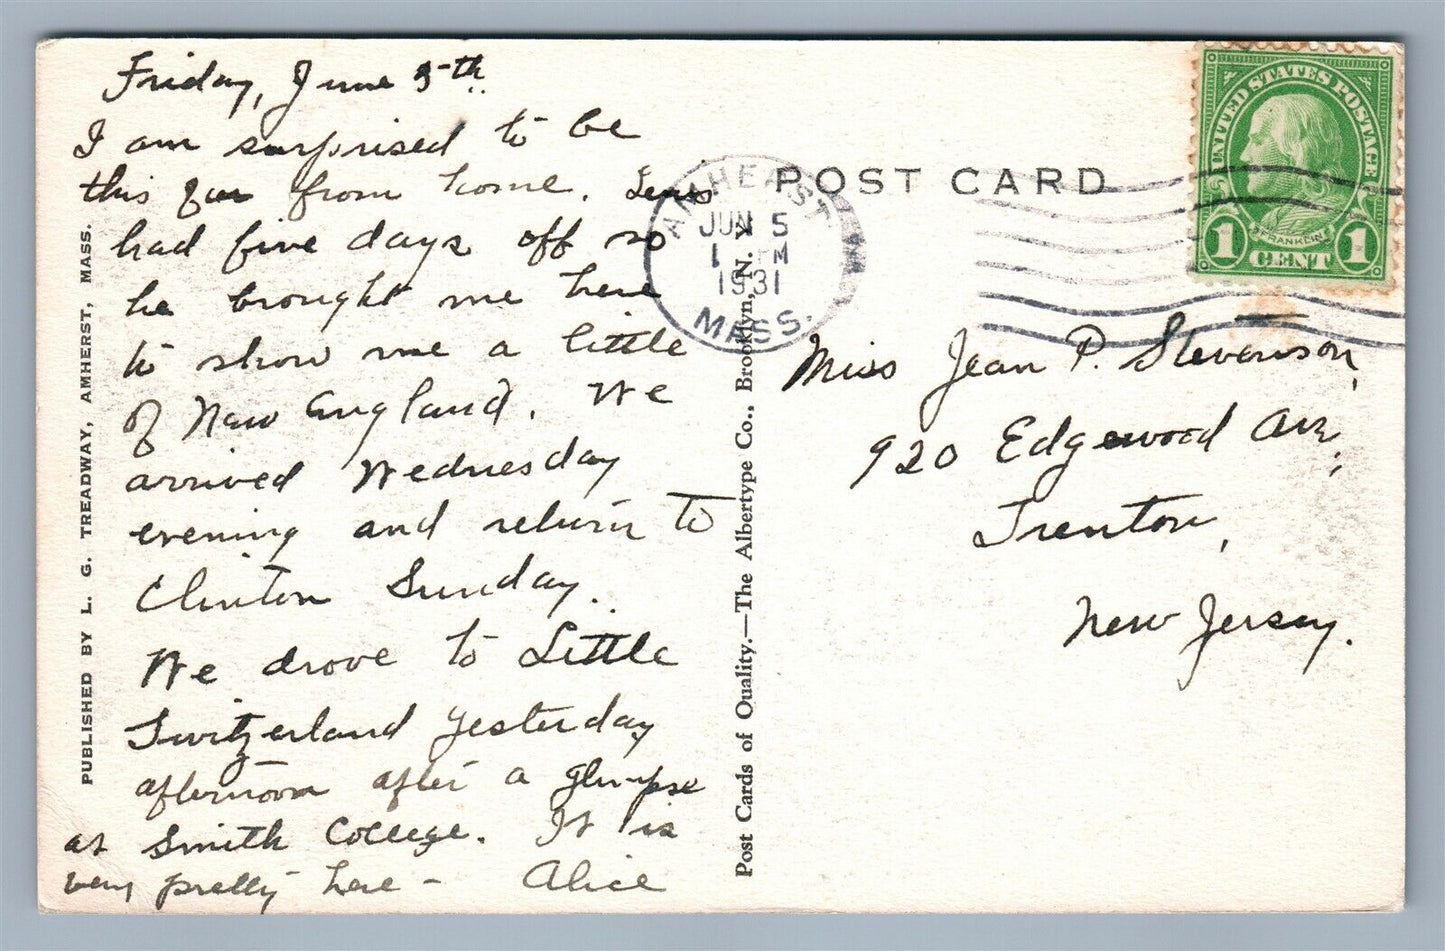 Friday, June 5th.
I am surprised to be
this far from home. Lewis
had five days off so
he brought me here
to show me a little
of New England. We
arrived Wednesday
evening and return to
Clinton Sunday.
We drove to Little
Switzerland yesterday
afternoon after a glimpse
at Smith College. It is
very pretty here - Alice
PUBLISHED BY L. G. TREADWAY, AMHERST, MASS.
Post Cards of Quality.—The Albertype Co., Brooklyn, N. Y.
POST CARD
AMHERST
JUN 5
1 PM
1931
MASS.
UNITED STATES POSTAGE
FRANKLIN
1 CENT 1
Miss Jean P. Stevenson,
920 Edgewood Ave.,
Trenton,
New Jersey.